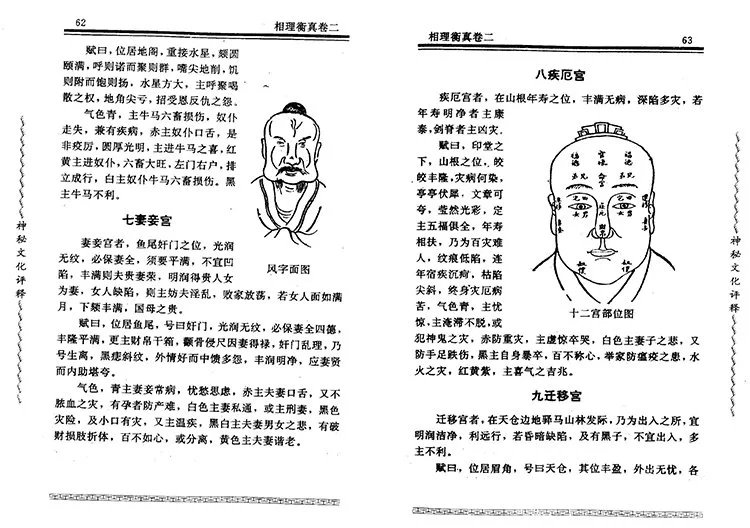 62
相理衡真卷二
赋曰，位居地阁，重接水星，颏圆
颐满，呼则诺而聚则群，嘴尖地削，饥
则附而饱则扬，水星方大，主呼聚喝
散之权，地角尖亏，招受恩反仇之怨。
气色青，主牛马六畜损伤，奴仆
走失，兼有疾病，赤主奴仆口舌，是
非疫厉，圆厚光明，主进牛马之喜，红
黄主进奴仆，六畜大旺，左门右户，排
立成行，白主奴仆牛马六畜损伤。黑
主牛马不利。
七妻妾宫
妻妾宫者，鱼尾奸门之位，光润
无纹，必保妻全，须要平满，不宜凹
陷，丰满则夫贵妻荣，明润得贵人女
为妻，女人缺陷，则主妨夫淫乱，败家放荡，若女人面如满
月，下颏丰满，国母之贵。
风字面图
赋曰，位居鱼尾，号曰奸门，光润无纹，必保妻全四德，
丰隆平满，更主财帛千箱，颧骨侵尺因妻得禄，奸门乱理，乃
号生离，黑痣斜纹，外情好而中馈多怨，丰润明净，应妻贤
而内助堪夸。
气色，青主妻妾常病，忧愁思虑，赤主夫妻口舌，又不
脓血之灾，有孕者防产难，白色主妻私通，或主刑妻，黑色
灾险，及小口有灾，又主温疾，黑白主夫妻男女之悲，有破
财损肢折体，百不如心，或分离，黄色主夫妻谐老。
神秘文化评释
相理衡真卷二
63
八疾厄宫
疾厄宫者，在山根年寿之位，丰满无病，深陷多灾，若
年寿明净者主康
泰，剑脊者主凶灾。
赋曰，印堂之
下，山根之位，皎
皎丰隆，灾病何染，
亭亭伏犀，文章可
夸，莹然光彩，定
主五福俱全，年寿
相扶，乃为百灾难
人，纹痕低陷，连
年宿疾沉疴，枯陷
尖斜，终身灾厄病
苦，气色青，主忧
惊，主淹滞不脱，或
犯神鬼之灾，赤防重灾，主虚惊卒哭，白色主妻子之悲，又
防手足跌伤，黑主自身暴卒，百不称心，举家防瘟疫之患，水
火之灾，红黄紫，主喜气之吉兆。
十二宫部位图
九迁移宫
迁移宫者，在天仓边地驿马山林发际，乃为出入之所，宜
明润洁净，利远行，若昏暗缺陷，及有黑子，不宜出入，多
主不利。
赋曰，位居眉角，号曰天仓，其位丰盈，外出无忧，各
神秘文化评释